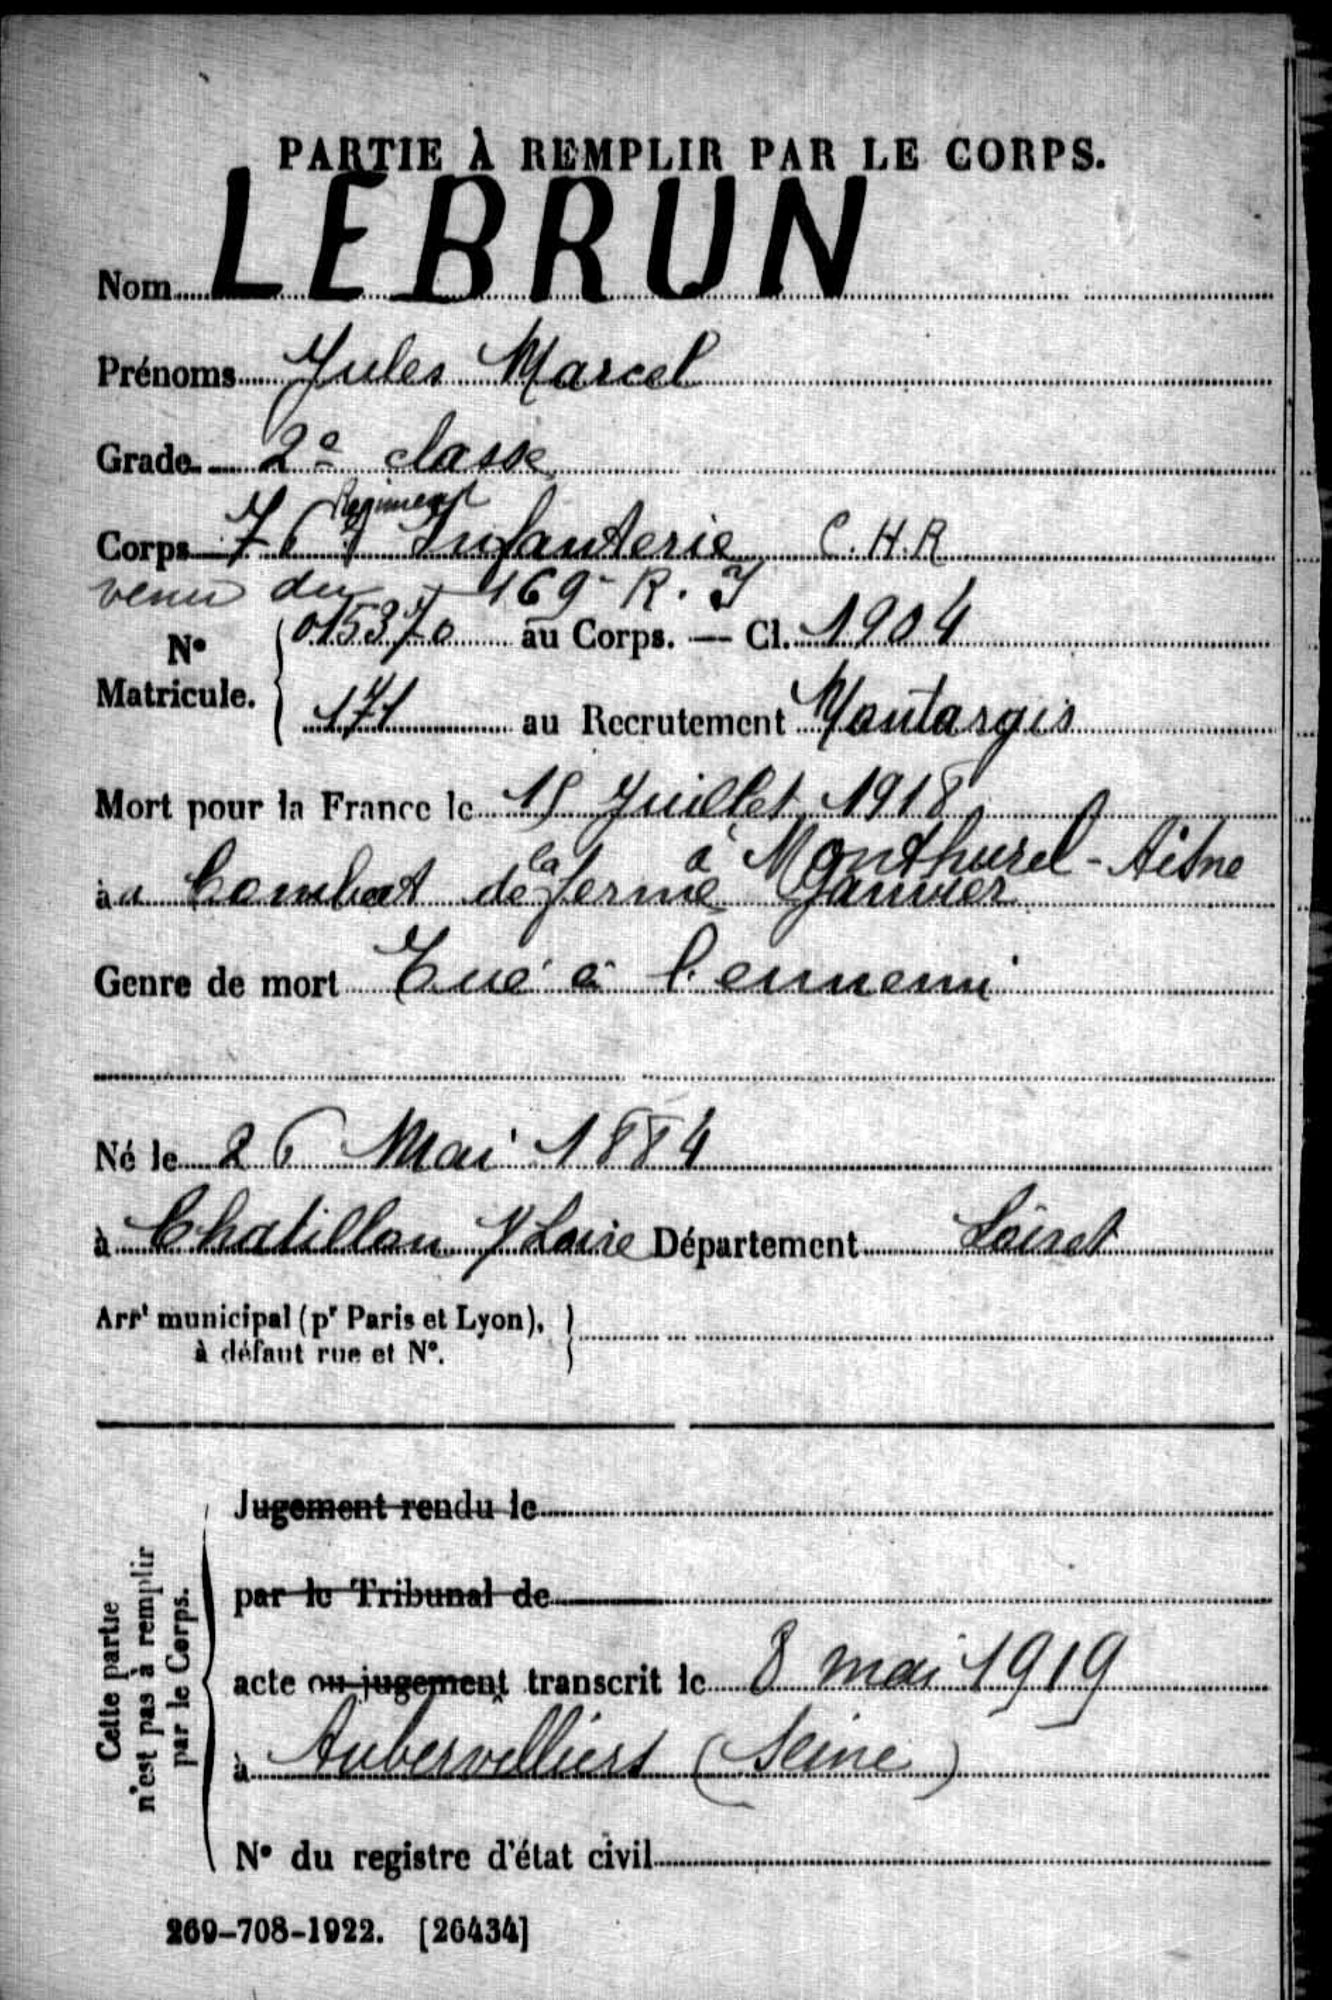 PARTIE À REMPLIR PAR LE CORPS.
Nom LEBRUN
Prénoms Jules Marcel
Grade 2e classe
Corps 76e Régiment Infanterie C.H.R
venu du 169e R. I
No Matricule. 015370 au Corps. — Cl. 1904
171 au Recrutement Montargis
Mort pour la France le 15 Juillet 1918
à Monthurel - Aisne
au Combat de la ferme Janvier
Genre de mort Tué à l'ennemi
Né le 26 Mai 1884
à Chatillon s/ Loire Département Loiret
Arrt municipal (pr Paris et Lyon),
à défaut rue et No.
Cette partie
n'est pas à remplir
par le Corps.
Jugement rendu le
par le Tribunal de
acte ou jugement transcrit le 8 mai 1919
à Aubervilliers (Seine)
No du registre d'état civil
269-708-1922. [26434]